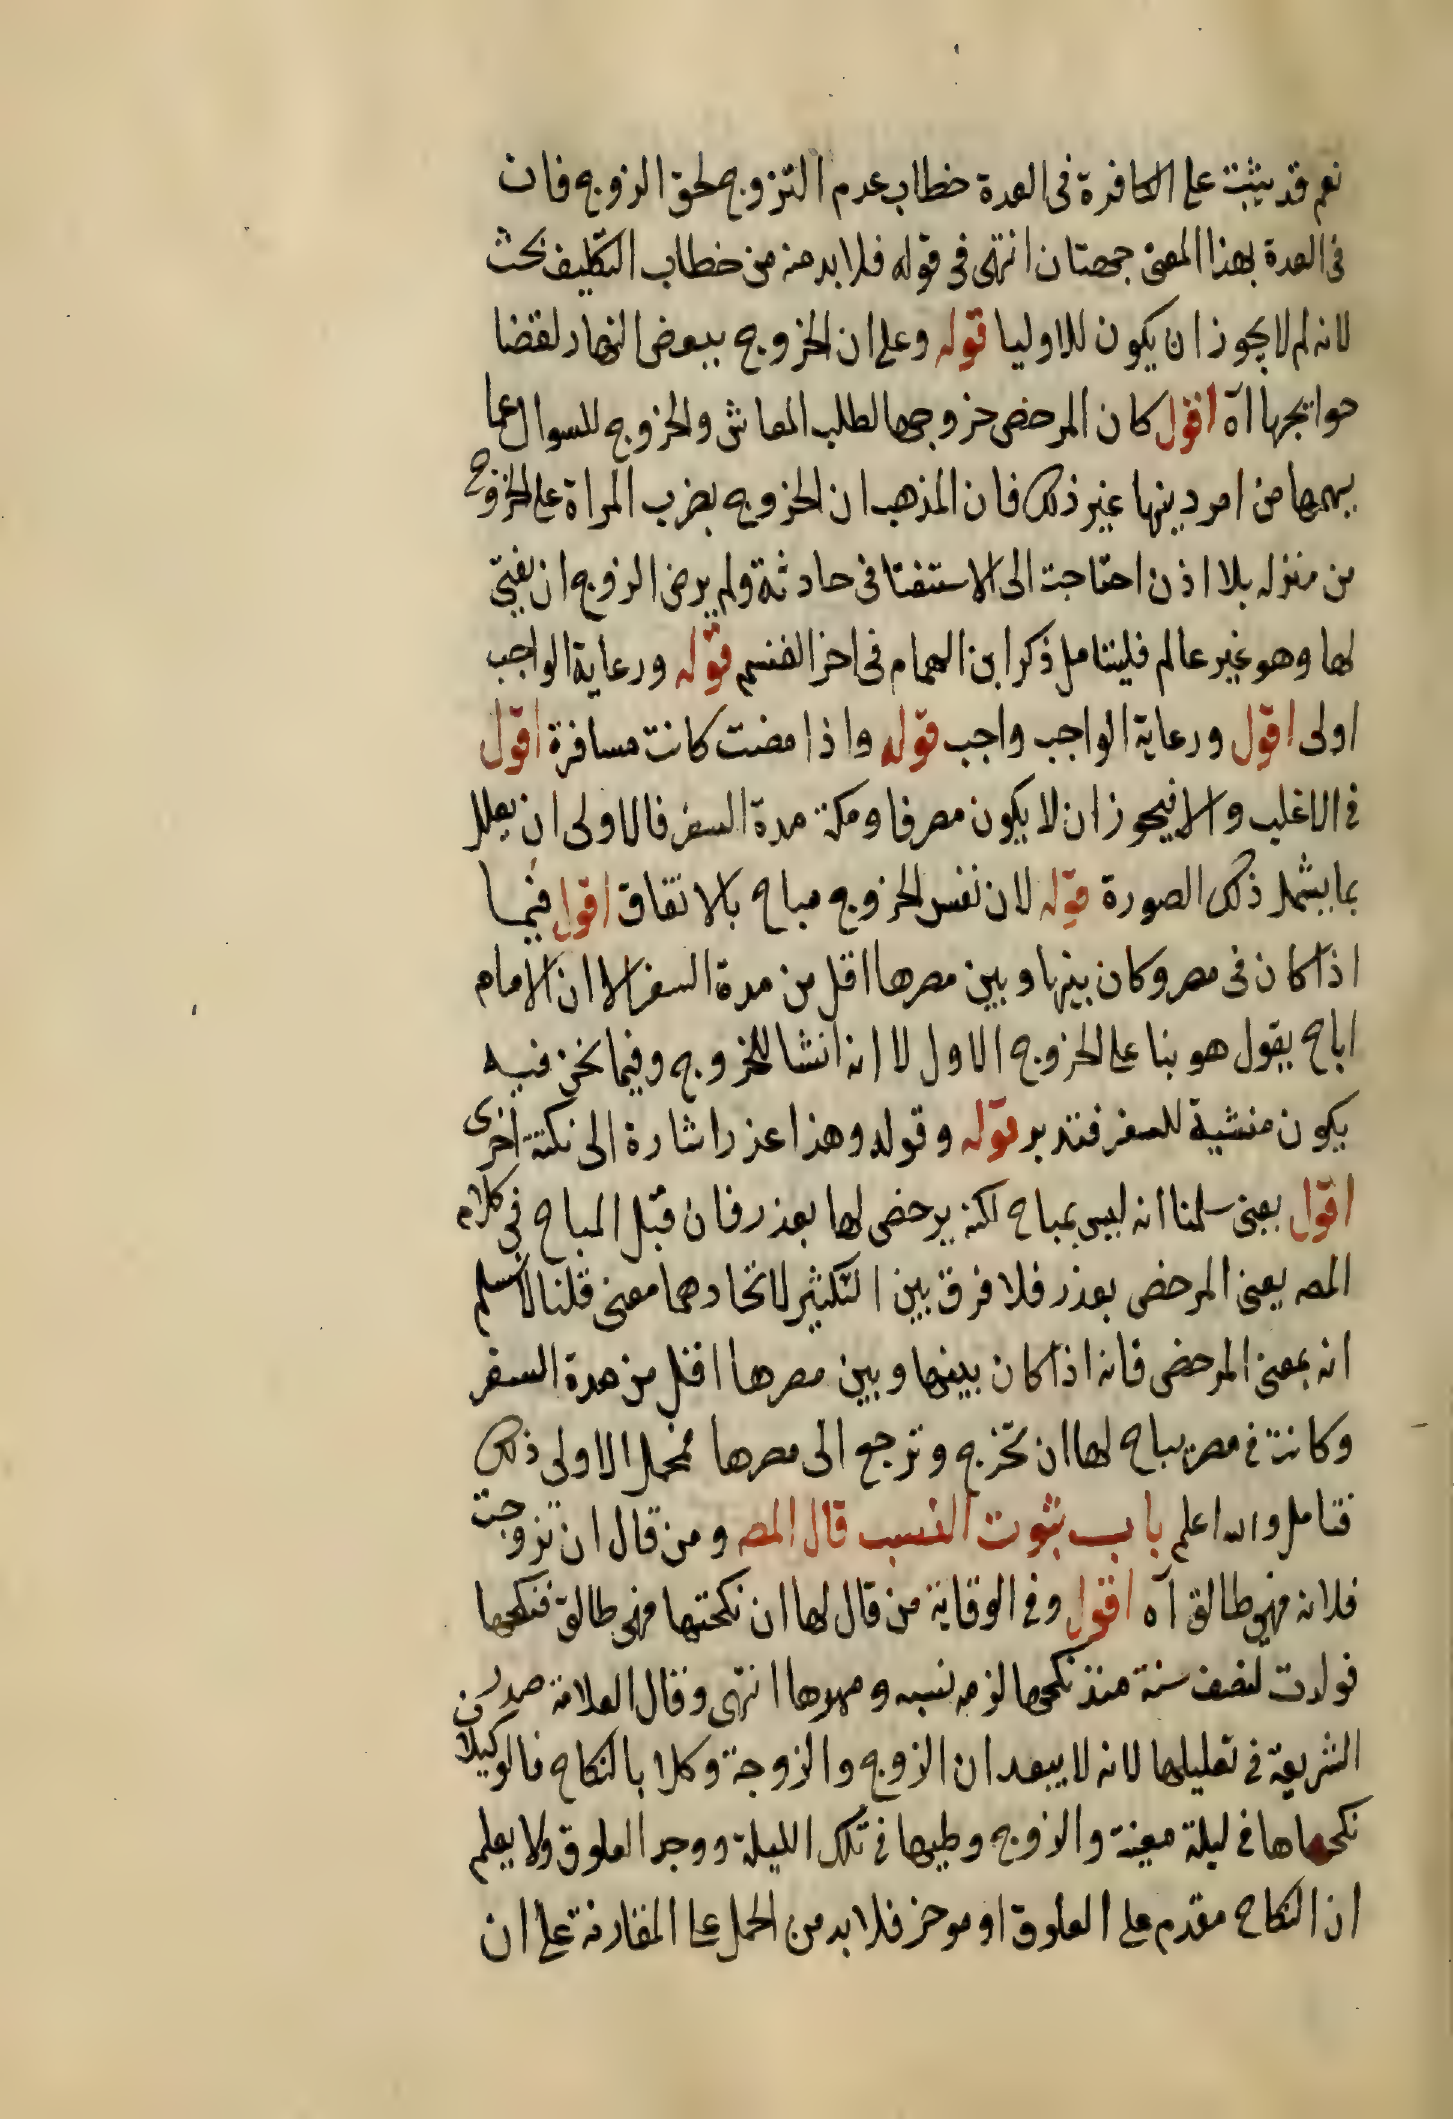 نعم قد يثبت على الكافرة فى العدة خطاب عدم التزوج لحق الزوج فان
فى العدة بهذا المعنى جهتان انتهى فى قوله فلا بد منه من خطاب التكليف بحث
لانه لم لا يجوز ان يكون للاوليا قوله وعلى ان الخروج ببعض النهار لقضا
حوايجها اه اقول كان المرخص خروجها لطلب المعاش والخروج للسوال عما
يهمها من امر دينها غير ذلك فان المذهب ان الخروج يضرب المراة على الخروج
من منزله بلا اذن احتاجت الى الاستفتا فى حادثة ولم يرض الزوج ان يفتى
لها وهو غير عالم فليتامل ذكر ابن الهمام فى اخر القسم قوله ورعاية الواجب
اولى اقول ورعاية الواجب واجب قوله واذا مضت كانت مسافرة اقول
فى الاغلب والا فيجوز ان لا يكون مصرفا ومكة مدة السفر فالاولى ان يعلل
بما يشمل ذلك الصورة قوله لان نفس الخروج مباح بالاتفاق اقول فيما
اذا كان فى مصر وكان بينها وبين مصرها اقل من مدة السفر الا ان الامام
اباح يقول هو بنا على الخروج الاول لا انه انشا للخروج وفيما نحن فيه
يكون منشية للسفر فتدبر قوله وقوله وهذا عذر اشارة الى نكتة اخرى
اقول يعنى سلمنا انه ليس بمباح لكنه يرخص لها بعذر فان قيل المباح فى كلام
المص يعنى المرخص بعذر فلا فرق بين التكثير لاتحادهما معنى قلنا لا نسلم
انه بمعنى المرخص فانه اذا كان بينها وبين مصرها اقل من مدة السفر
وكانت فى مصر يباح لها ان تخرج وترجع الى مصرها فمحمل الاولى ذلك
فتامل والله اعلم باب ثبوت النسب قال المص ومن قال ان تزوجت
فلانه فهى طالق اه اقول وفى الوقاية من قال لها ان نكحتها فهى طالق فنكحها
فولدت لنصف سنة منذ نكحها لزمه نسبه ومهرها انتهى وقال العلامة صدر
الشريعة فى تعليلها لانه لا يبعد ان الزوج والزوجة وكلا بالنكاح فالوكيلان
نكحاها فى ليلة معينة والزوج وطيها فى تلك الليلة ووجد العلوق ولا يعلم
ان النكاح مقدم على العلوق او موخر فلا بد من الحمل على المقارنة على ان